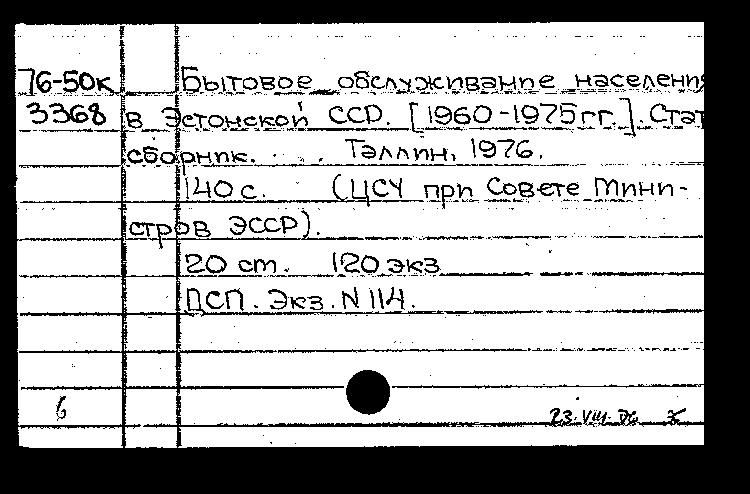 76-50к Бытовое обслуживание населения
3368 в Эстонской ССР. [1960-1975гг.]. Стат
сборник. Таллин, 1976.
140 с. (ЦСУ при Совете Мини-
стров ЭССР).
20 см. 120 экз
ДСП. Экз. N 114.
6 23.VIII.76